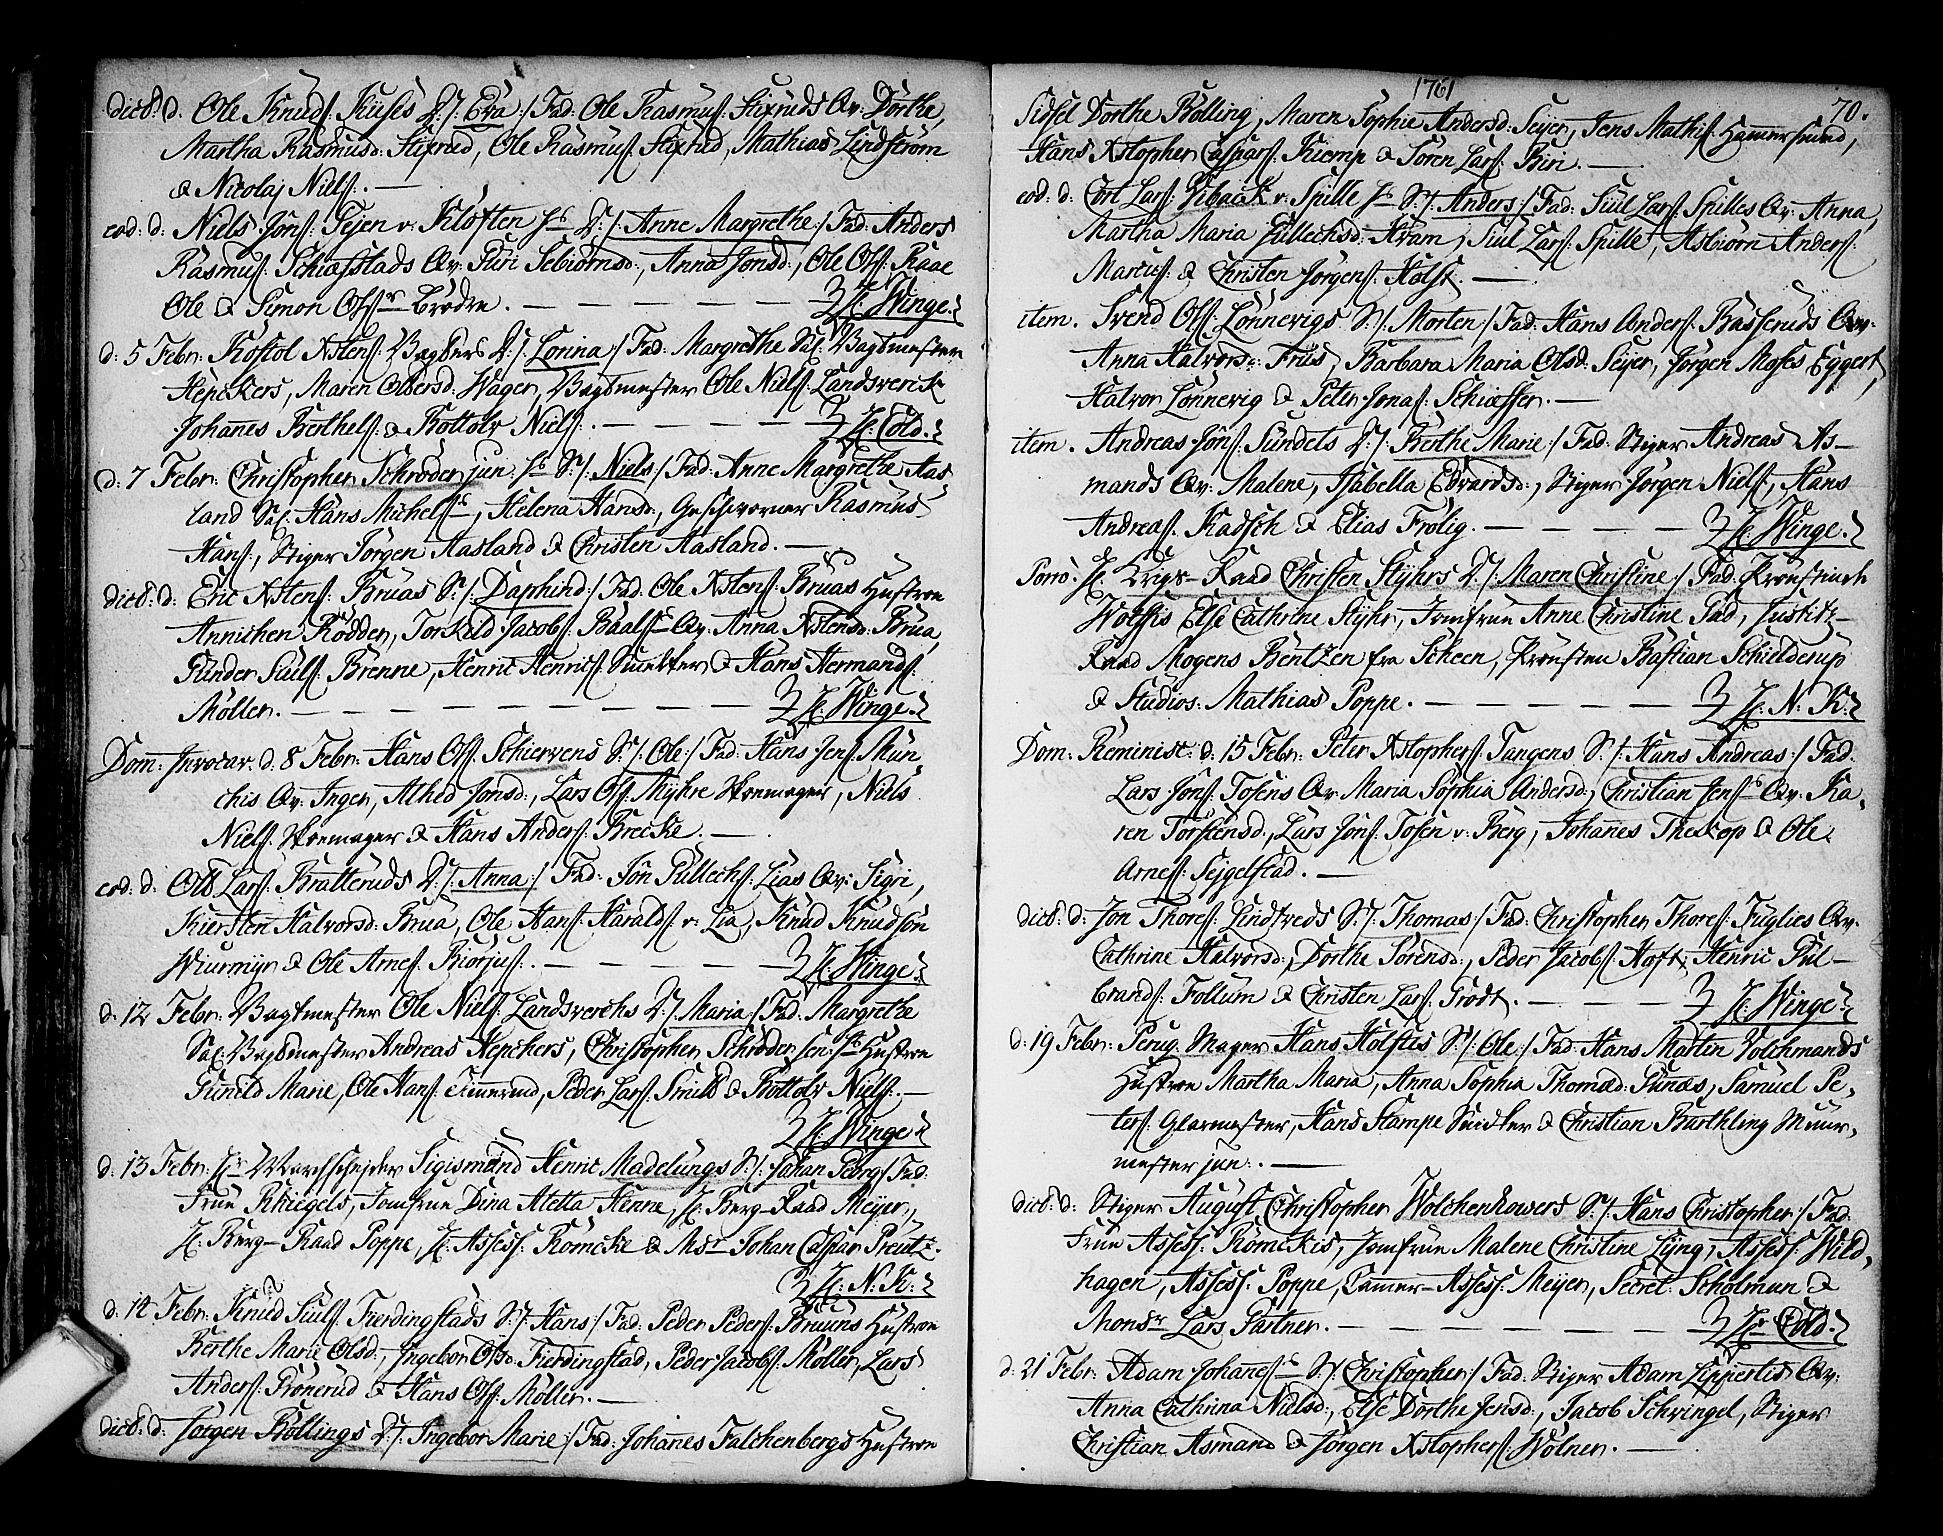 dict. d. Ole Knuds: Kuses D:/: Eva :/ Fad: Ole Rasmus: Stixruds Qv: Dorthe,
Martha Rasmusd: Stixrud, Ole Rasmus: Stixrud, Mathias Lindstrøm
& Nicolaj Niels: . —
eod: d: Niels Jons: Tejen v: Kloften D:/: Anne Margrethe :/ Fad: Anders
Rasmus: Qv: Guri Sebiørnsd:, Anna Jonsd:, Ole Ols: Raae
Ole & Simon Ols: Brødre. — — — — — H: Winge.
d: 5 Febr: Kostol Xstens: D:/: Lorina :/ Fad: Margrethe Sal: Vagtmester
Hepckers, Maren Olversd: Wager, Vagtmester Ole Niels: Landsverck
Johanes Berthels: & Bottolv Niels: . — — — — H: Cold.
d: 7 Febr: Christopher Schroder jun: S:/: Niels :/ Fad: Anne Margrethe Aas-
land Sal: Hans Michels:, Helena Hansd:, Geschworner Rasmus
Hans:, Stiger Jørgen Aasland & Christen Aasland. —
dict: d: Eric Xstens: Bruas S:/: Daphind :/ Fad: Ole Xstens: Bruas Hustroe
Annichen Rødder, Torkild Jacobs: Qv: Anna Xstensd: Brua,
Gunder Siuls: Brenne, Henric Henrics: & Hans Hermands:
Møller. — — — — — — — — H: Winge.
Dom: Invocav. d. 8 Febr: Hans Ols: Schiervens S:/: Ole :/ Fad: Hans Jens: Mun-
chis Qv: Inger, Athed Jonsd:, Lars Ols: Myhre Skoemager, Niels
Niels: Skoemager & Hans Anders: Brecke. —
eod: d: Ole Lars: Bratteruds D:/: Anna :/ Fad: Jon Gullechs: Lias Qv: Sigri,
Kiersten Halvorsd: Brua, Ole Hans: Haralds: v: Lia, Knud Knudsøn
Wiurmyr & Ole Arnes: Biorjus: . — — — — — H: Winge.
d: 12 Febr: Vagtmester Ole Niels: Landsverchs D:/: Maria :/ Fad: Margrethe
Sal: Vagtmester Andreas Hepchers, Christopher Schrøder sen: Hustroe
Gunild Marie, Ole Hans: Tømmermd, Peder Lars: Smith & Bottolv Niels: . —
H: Winge
d. 13 Febr: Hr Marchschejder Sigismund Henric Madelungs S:/: Johan Georg :/ Fad:
Frue Jomfrue Dina Aletta Henne, H: Berg-Raad Meyer,
H: Berg-Raad Poppe, H: Assess: Rømcke & Msr Johan Caspar Preutz.
H: N: K:
d. 14 Febr: Knud Siuls: Fierdingstads S:/: Hans :/ Fad: Peder Peders: Bruuns Hustroe
Berthe Marie Olsd:, Ingebor Olsd: Fierdingstad, Peder Jacobs: Møller, Lars
Anders: Prønerud & Hans Ols: Møller. —
dict: d: Jørgen Bollings D:/: Ingebor Marie :/ Fad: Johanes Falchenbergs Hustroe
1761
70.
Sidsel Dorthe Bolling, Maren Sophie Andersd: Seyer, Jens Mathis: Hammersmed,
Hans Xstopher Caspars: Kiemp & Søren Lars: Biri. —
eod: d: Cort Lars: Giback v: Spille S:/: Anders :/ Fad: Siul Lars: Spilles Qv: Anna,
Martha Maria Gullechsd: Kram, Siul Lars: Spille, Asbiørn Anders:
Marcus: & Christen Jørgens: Holst. —
item. Svend Ols: Lønnevigs S:/: Morten :/ Fad: Hans Anders: Basseruds Qv:
Anna Halvorsd: Friis, Barbara Maria Olsd: Seyer, Jørgen Moses Eggert,
Halvor Lønnevig & Peter Jonas: Schiæffer. —
item. Andreas Jons: Sundets D:/: Berthe Marie :/ Fad: Stiger Andreas As-
mands Qv: Malene, Isabella Edvardsd:, Stiger Jørgen Niels:, Hans
Andreas: Kadsch & Elias Frølig. — — — — — H: Winge.
Porro. H: Krigs-Raad Christen Styhrs D:/: Maren Christine :/ Fad: Proustinde
Wolffis Else Cathrine Styhr, Jomfrue Anne Christine Gad, Justitz-
Raad Mogens Bentzen fra Scheen, Prousten Bastian Schielderup
& Studios: Mathias Poppe. — — — — — — H: N: K:
Dom: Reminisc: d: 15 Febr: Peter Xstophers: Tangens S:/: Hans Andreas :/ Fad:
Lars Jons: Tosens Qv: Maria Sophia Andersd:, Christian Jens: Qv: Ka-
ren Torstensd:, Lars Jons: Tosen v: Berg, Johanes Thecop & Ole
Arnes: Sejgelstad. —
dict: d: Jon Thores: Lindtveds S:/: Thomas :/ Fad: Christopher Thores: Fuglies Qv:
Cathrine Halvorsd:, Dorthe Sørensd:, Peder Jacobs: Hoft, Henric Gul-
brands: Follum & Christen Lars: Trodt. — — — — H: Winge
d: 19 Febr: Peruq-Mager Hans Holstes S:/: Ole :/ Fad: Hans Martin Volchmands
Hustroe Martha Maria, Anna Sophia Thomæd: Funæs, Samuel Pe-
ters: Glarmester, Hans Stampe & Christian Barthling Muur-
mester jun: . —
dict: d: Stiger August Christopher Wolchenhowers S:/: Hans Christopher :/ Fad:
Frue Assess: Rømckis, Jomfrue Malene Christine Lyng, Assess: Wild-
hagen, Assess: Poppe, Cammer-Assess: Meyer, Secret: Scholman &
Monsr Lars Partner. — — — — — — — — Hr Cold.
d: 21 Febr: Adam Johanes: S:/: Christopher :/ Fad: Stiger Adam Lippertis Qv:
Anna Cathrina Nielsd:, Else Dorthe Jensd:, Jacob Schwingel, Stiger
Christian Asmand & Jørgen Xstophers: Wølner. —